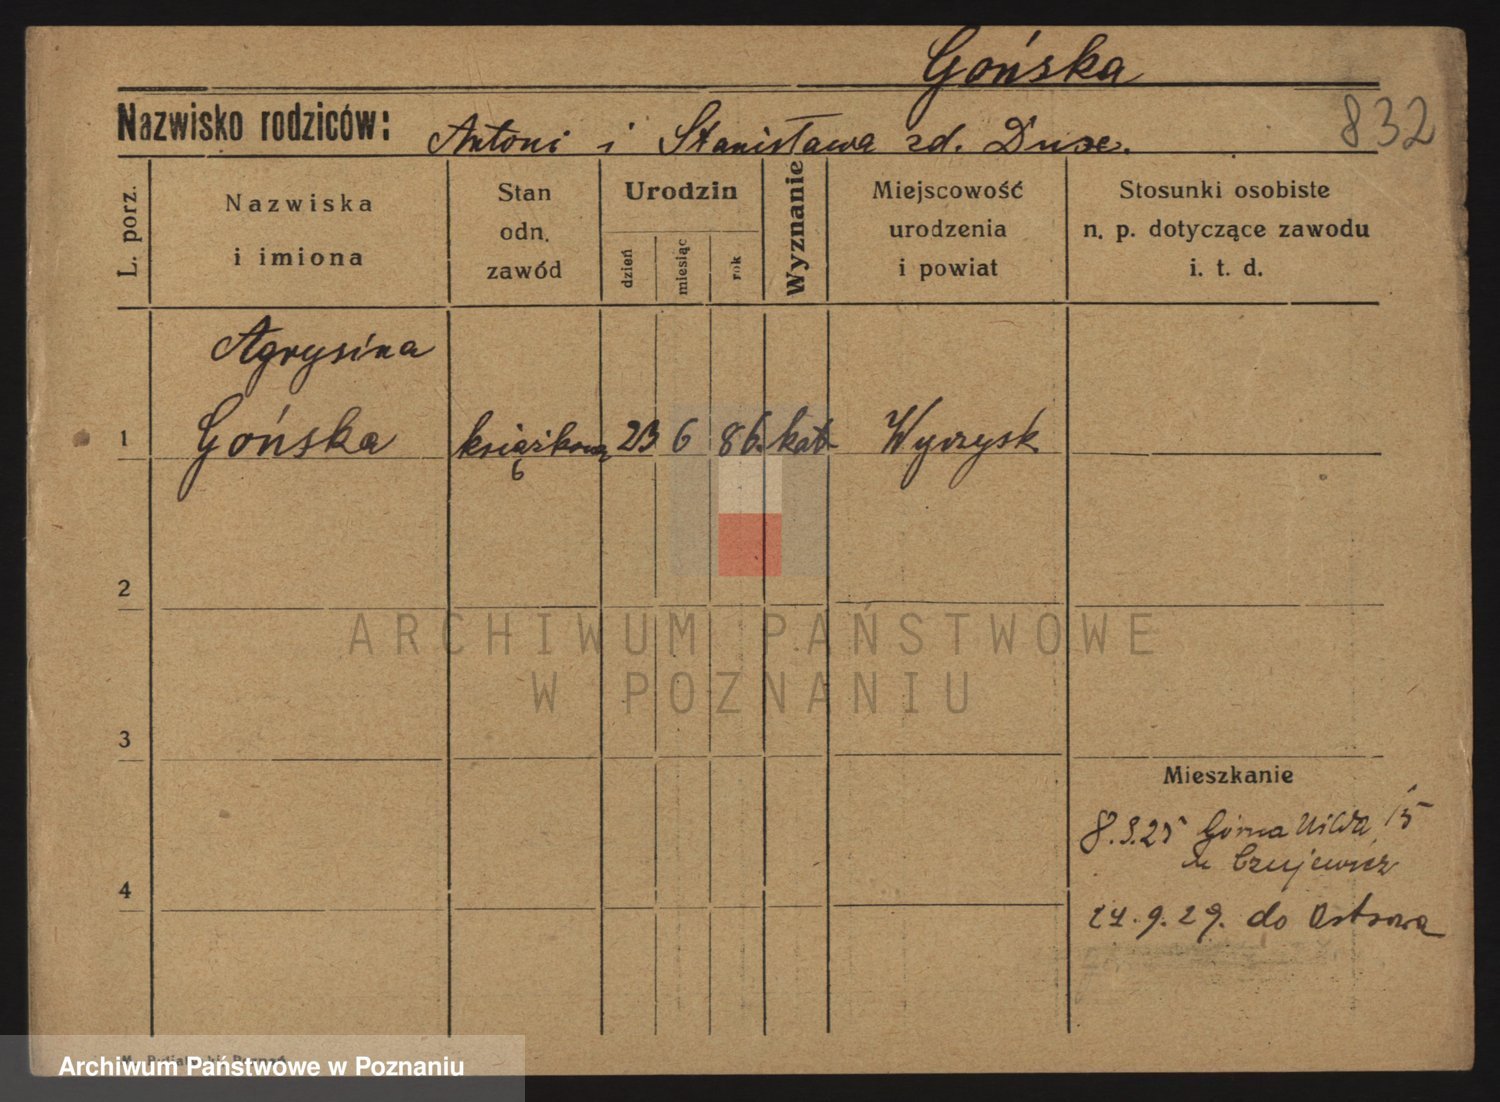 Gońska
832
Nazwisko rodziców: Antoni i Stanisława zd. Duxe.
L. porz.
Nazwiska
i imiona
Stan
odn.
zawód
Urodzin
dzień
miesiąc
rok
Wyznanie
Miejscowość
urodzenia
i powiat
Stosunki osobiste
n. p. dotyczące zawodu
i. t. d.
Agrysina
1 Gońska książkowa 23 6 86. kat. Wyrzysk
2
ARCHIWUM PAŃSTWOWE
W POZNANIU
3
Mieszkanie
8.3.25 Górna Wilda 15
4
24.9.29. do Ostrowa
Archiwum Państwowe w Poznaniu